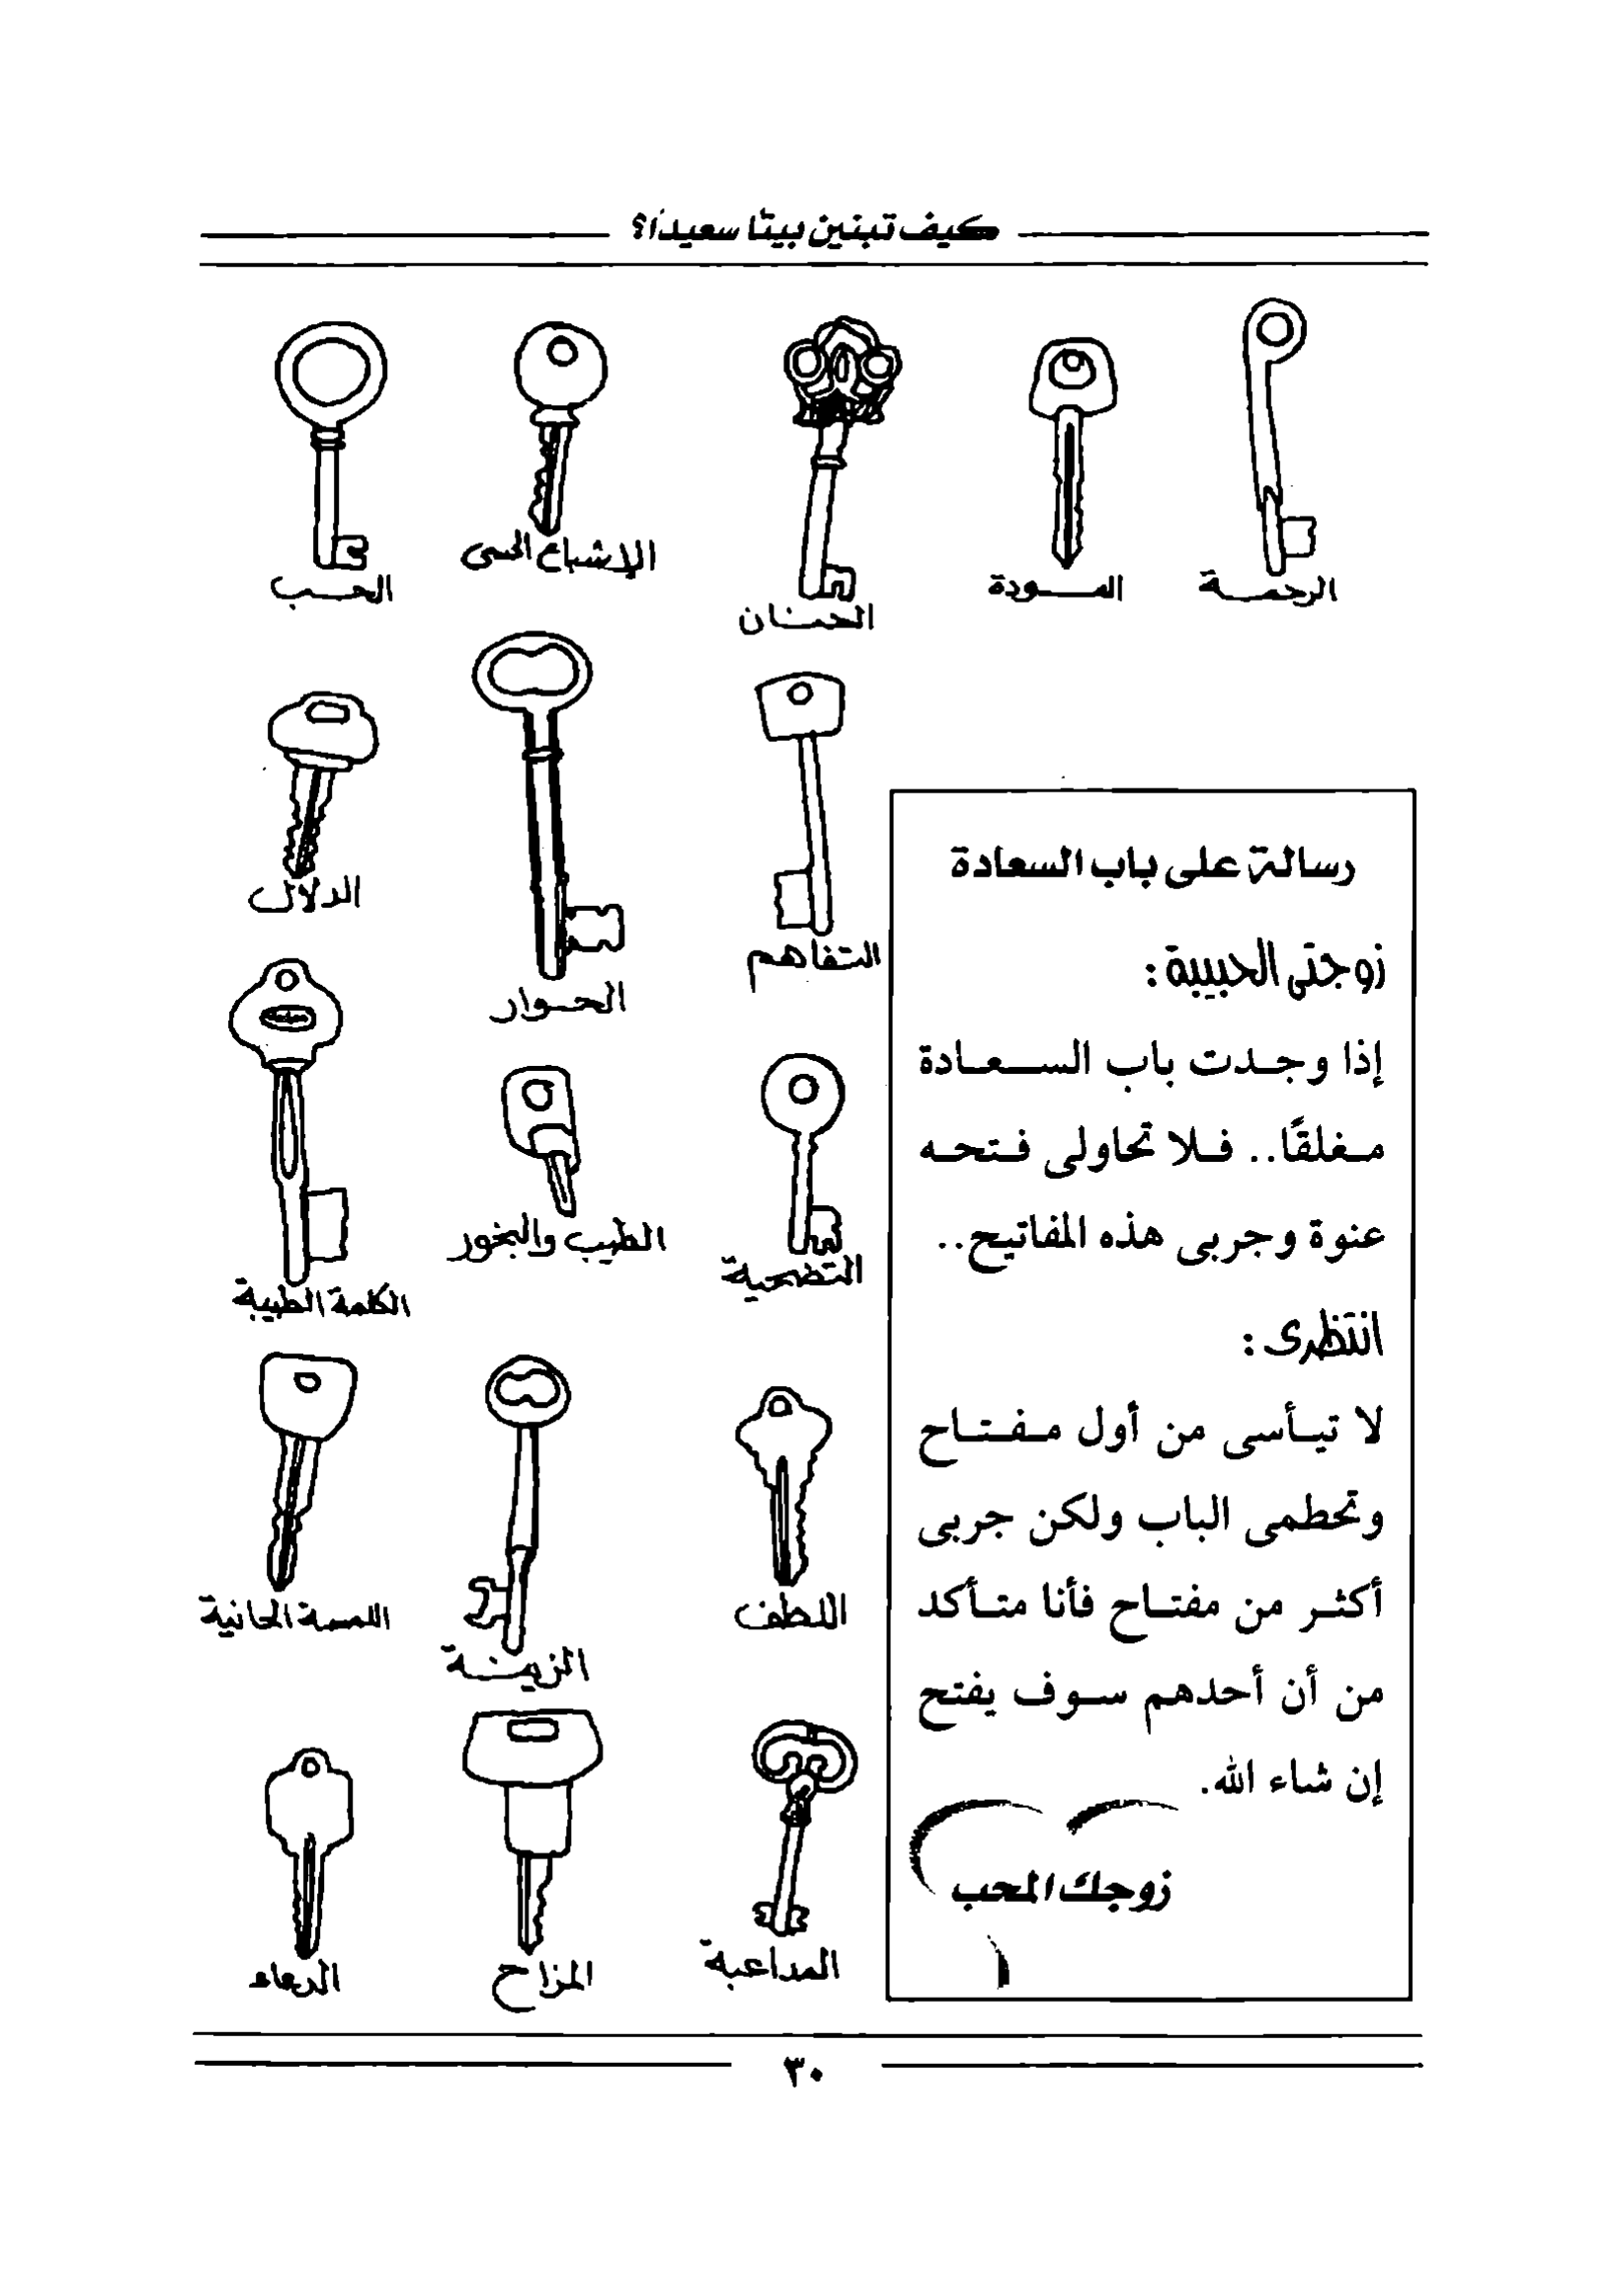 كيف تبنين بيتًا سعيدًا؟
الرحمة
المودة
الحنان
الإشباع الحسى
الحب
التفاهم
الحوار
الدلال
التضحية
الطيب والبخور
الكلمة الطيبة
اللطف
الزينة
اللمسة الحانية
المداعبة
المزاح
الدعاء
رسالة على باب السعادة
زوجتى الحبيبة:
إذا وجدت باب السعادة
مغلقًا.. فلا تحاولى فتحه
عنوة وجربى هذه المفاتيح..
انتظرى:
لا تيأسى من أول مفتاح
وتحطمى الباب ولكن جربى
أكثر من مفتاح فأنا متأكد
من أن أحدهم سوف يفتح
إن شاء الله.
زوجك المحب
٣٠